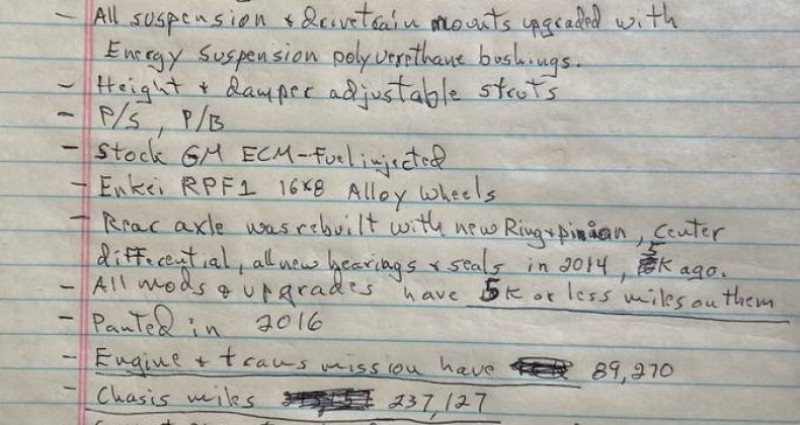 - All suspension & drivetrain mounts upgraded with
Energy Suspension polyurethane bushings.
- Height & damper adjustable struts
- P/S, P/B
- Stock GM ECM-Fuel injected
- Enkei RPF1 16x8 Alloy Wheels
- Rear axle was rebuilt with new Ring & pinion, center
differential, all new bearings & seals in 2014, 5K ago.
- All mods & upgrades have 5K or less miles on them
- Panted in 2016
- Engine & transmission have 89,270
- Chasis miles 237,127